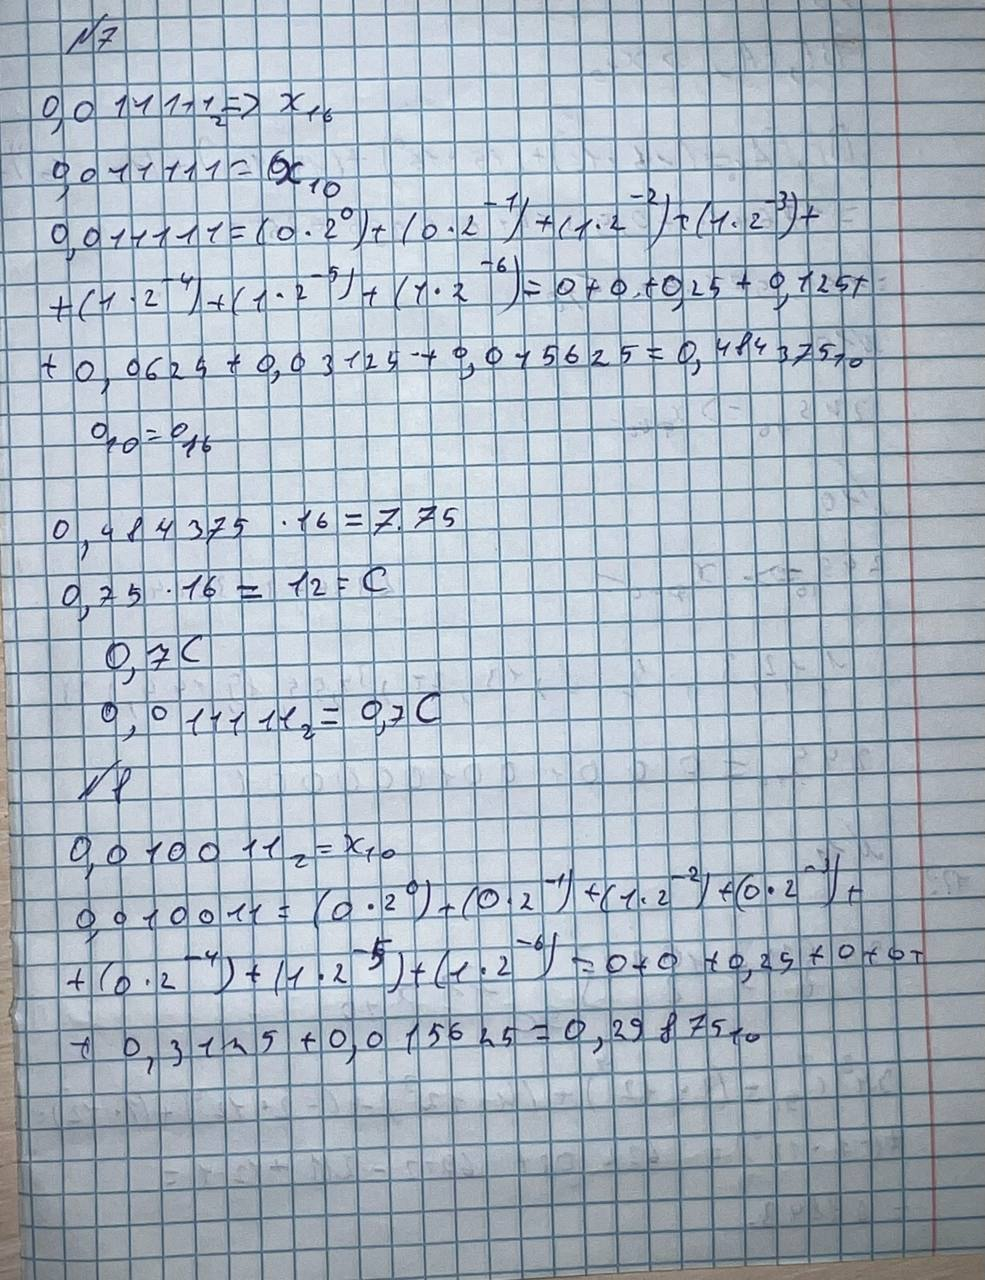 №7
0,011111₂ => x₁₆
0,011111 = x₁₀
0,011111 = (0·2⁰) + (0·2⁻¹) + (1·2⁻²) + (1·2⁻³) +
+ (1·2⁻⁴) + (1·2⁻⁵) + (1·2⁻⁶) = 0 + 0 + 0,25 + 0,125 +
+ 0,0625 + 0,03125 + 0,015625 = 0,484375₁₀
0₁₀ = 0₁₆
0,484375 · 16 = 7.75
0,75 · 16 = 12 = C
0,7C
0,011111₂ = 0,7C
№8
0,010011₂ = x₁₀
0,010011 = (0·2⁰) + (0·2⁻¹) + (1·2⁻²) + (0·2⁻³) +
+ (0·2⁻⁴) + (1·2⁻⁵) + (1·2⁻⁶) = 0 + 0 + 0,25 + 0 + 0 +
+ 0,3125 + 0,015625 = 0,29875₁₀